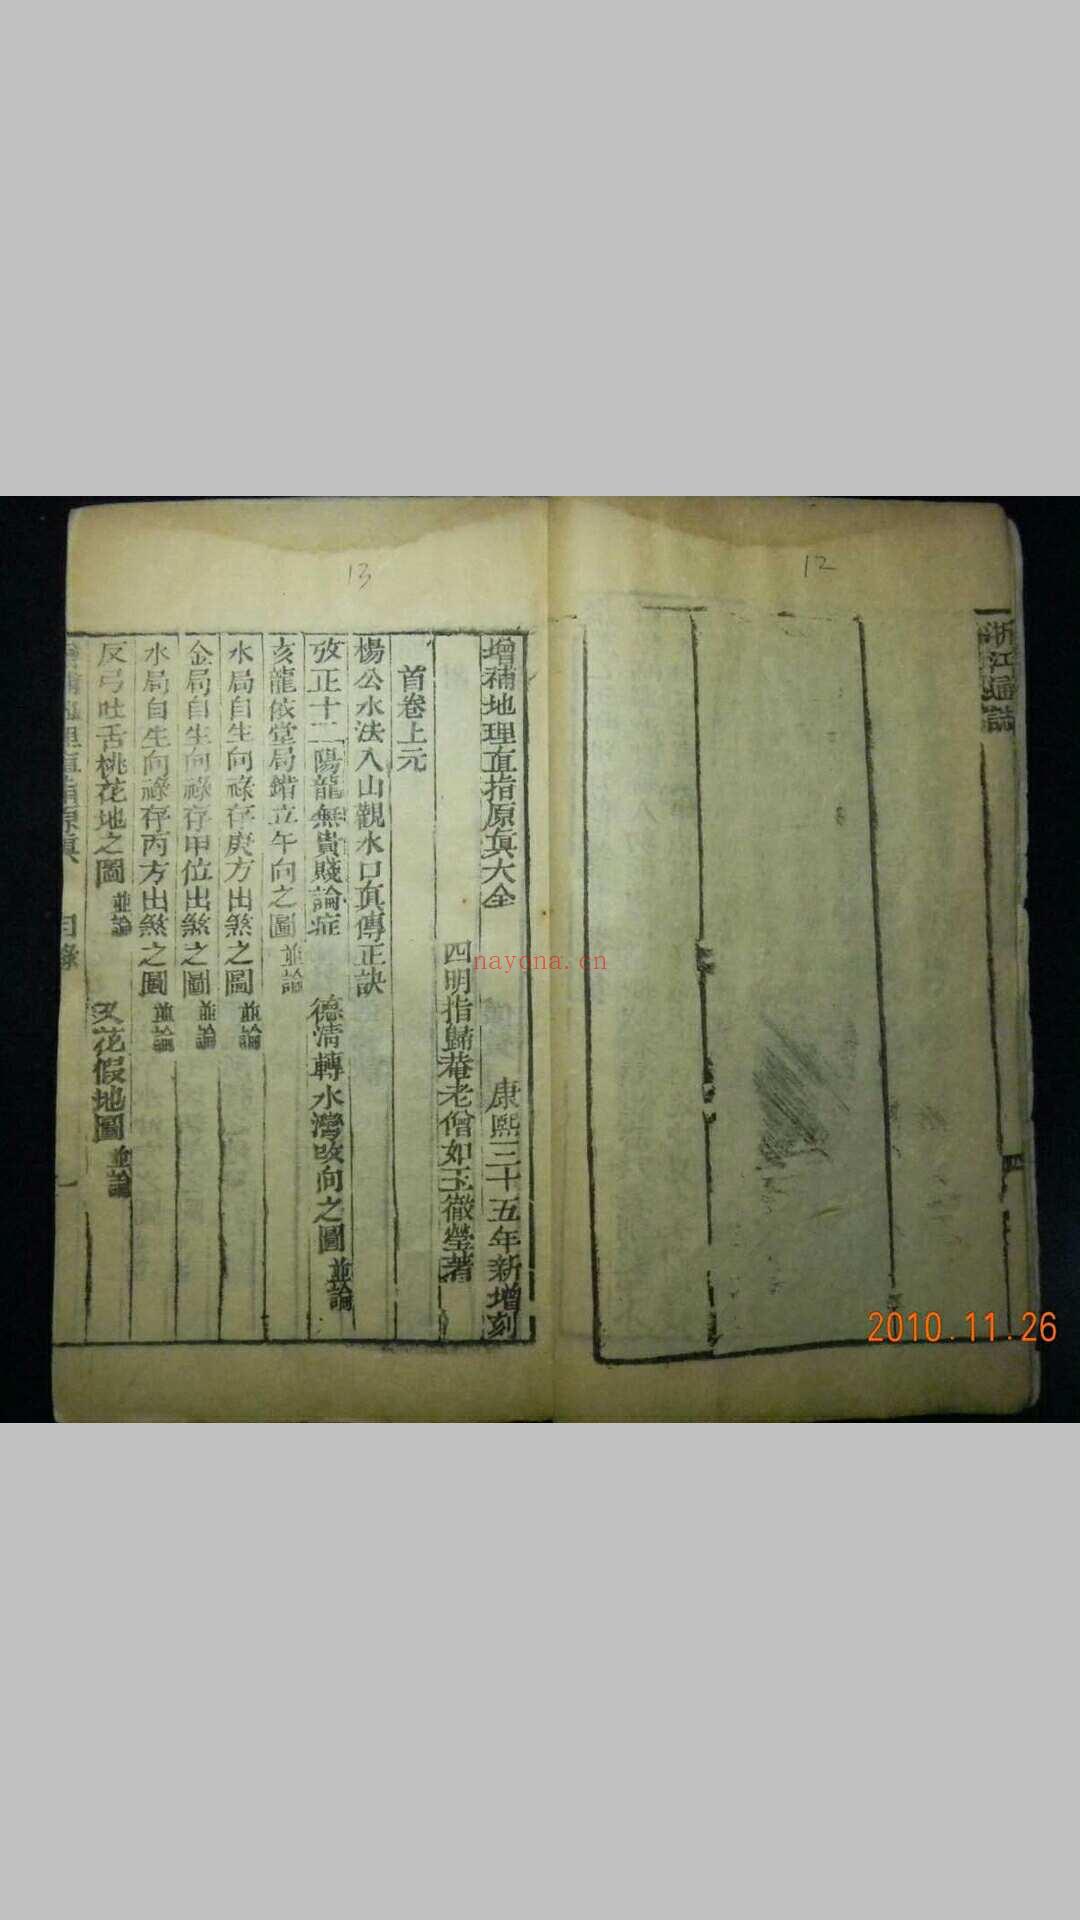 浙江通誌
四
12
13
增補地理直指原眞大全
康熙三十五年新增刻
四明指歸菴老僧如玉徹瑩著
首卷上元
楊公水法入山觀水口眞傳正訣
攷正十二陽龍無貴賤論症 德淸轉水灣改向之圖 並論
亥龍依堂局錯立午向之圖 並論
水局自生向祿存庚方出煞之圖 並論
金局自生向祿存甲位出煞之圖 並論
水局自生向祿存丙方出煞之圖 並論
反弓吐舌桃花地之圖 並論 又花假地圖 並論
原眞 目錄 一
nayona.cn
2010.11.26